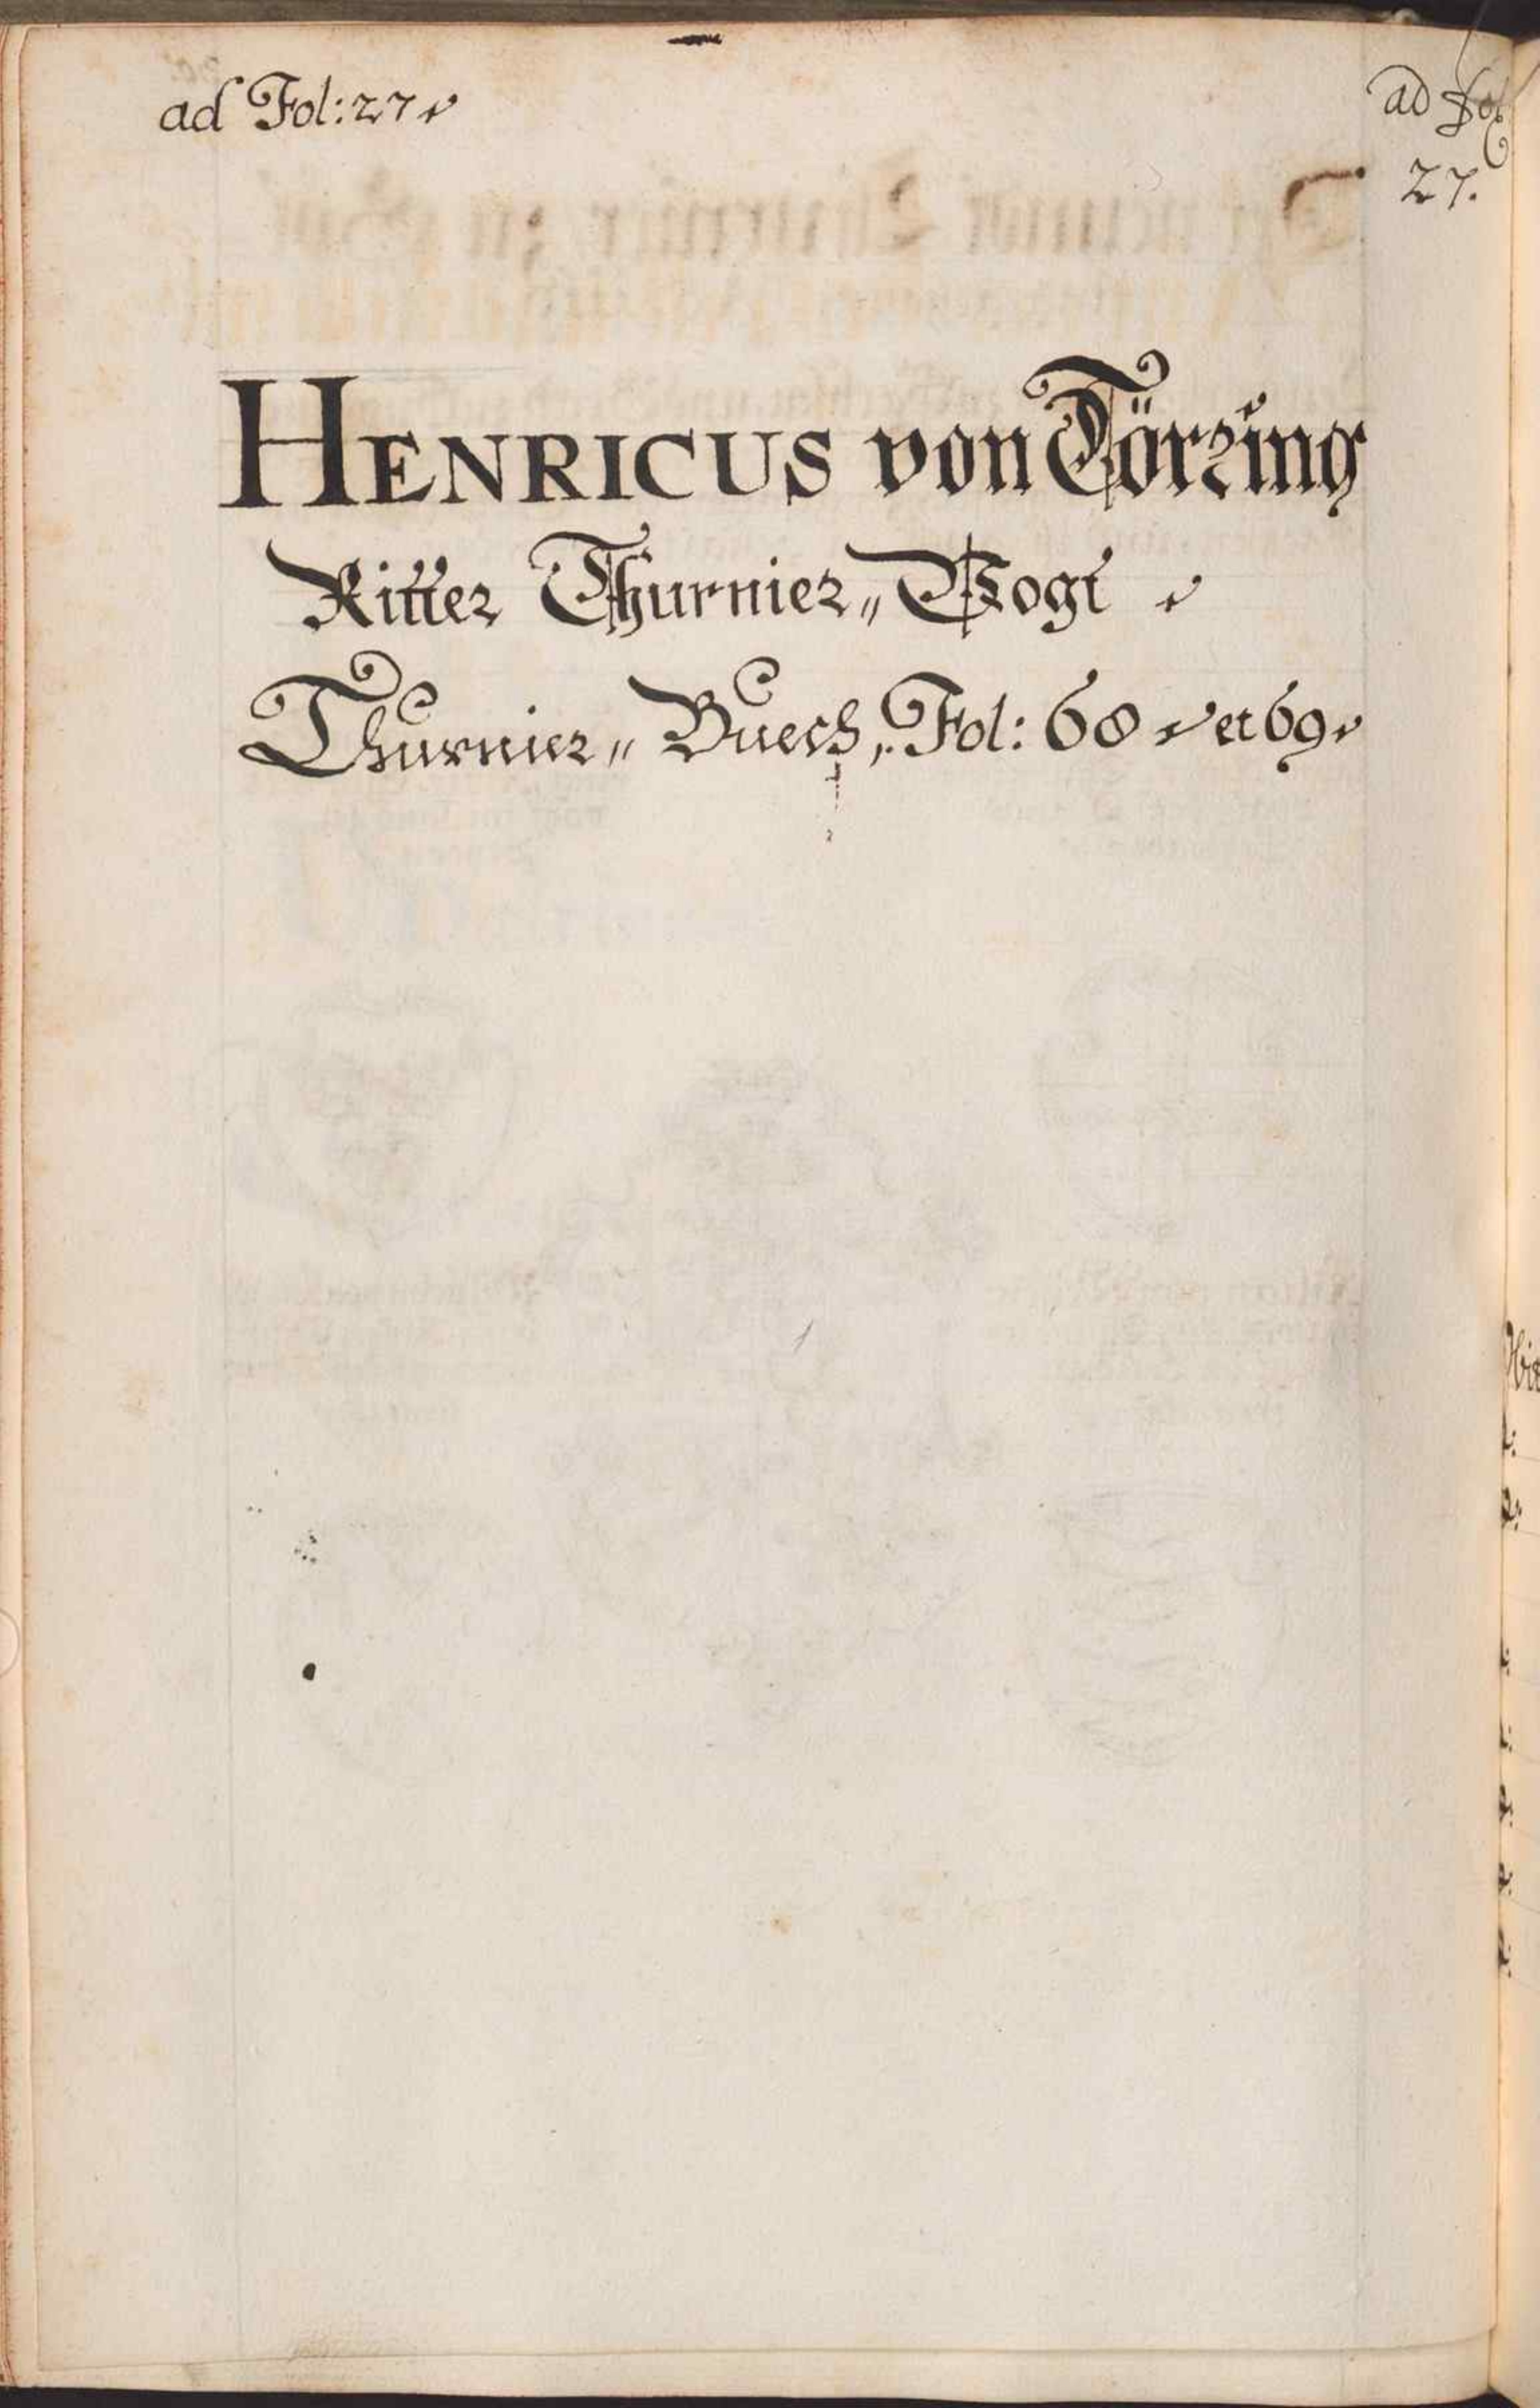 ad Fol: 27
ad Fol
27.
HENRICUS von Törring
Ritter Thurnier„ Vogt
Thurnier„ Buech, Fol: 68 et 69